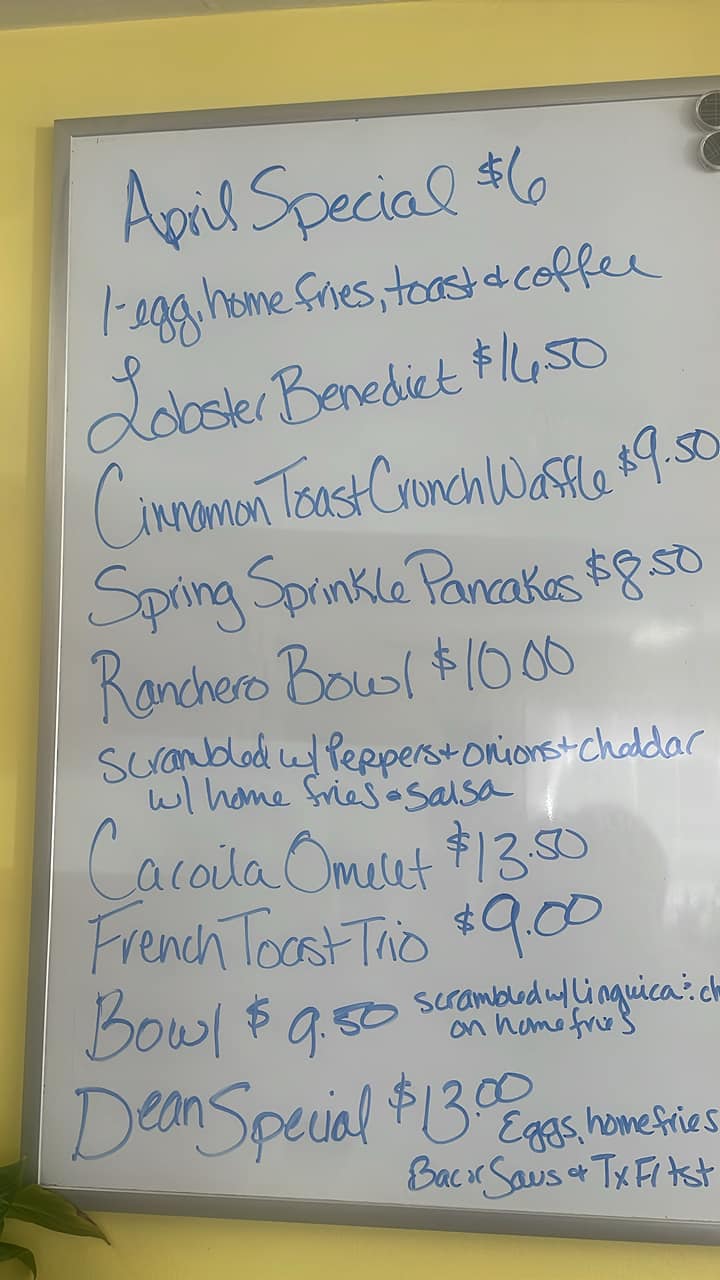 April Special $6
1-egg, home fries, toast & coffee
Lobster Benedict $16.50
Cinnamon Toast Crunch Waffle $9.50
Spring Sprinkle Pancakes $8.50
Ranchero Bowl $10.00
scrambled w/ Peppers + onions + cheddar
w/ home fries & salsa
Cacoila Omelet $13.50
French Toast Trio $9.00
Bowl $9.50 scrambled w/ linguica & ch
on home fries
Dean Special $13.00
Eggs, home fries
Bac or Saus & Tx F/ tst